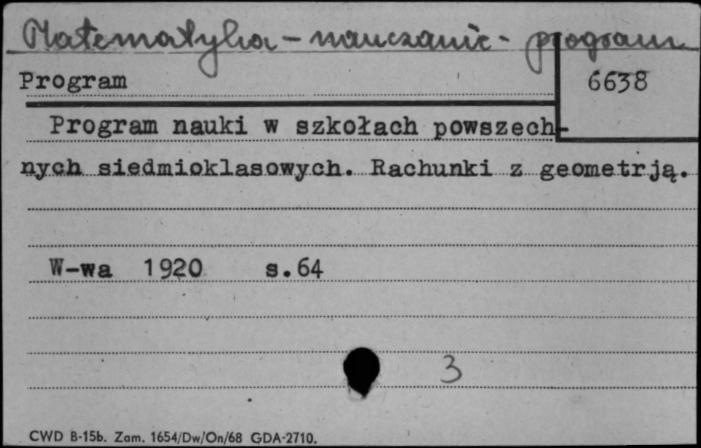 Matematyka - nauczanie - program
Program
6638
Program nauki w szkołach powszech-
nych siedmioklasowych. Rachunki z geometrją.
W-wa 1920 s.64
3
CWD B-15b. Zam. 1654/Dw/On/68 GDA-2710.